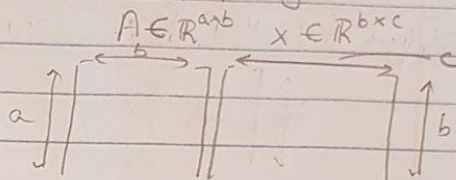 A ∈ ℝ^{a×b} x ∈ ℝ^{b×c}
b c
a b